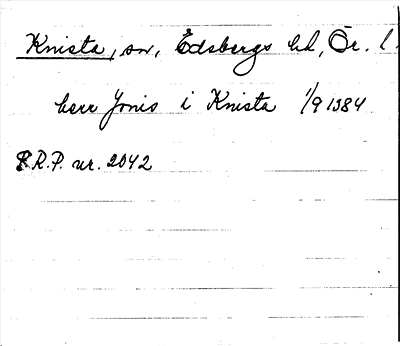 Knista, sn, Edsbergs hd, Ör. l.
herr Jonis i Knista 1/9 1384
R.P. nr. 2042